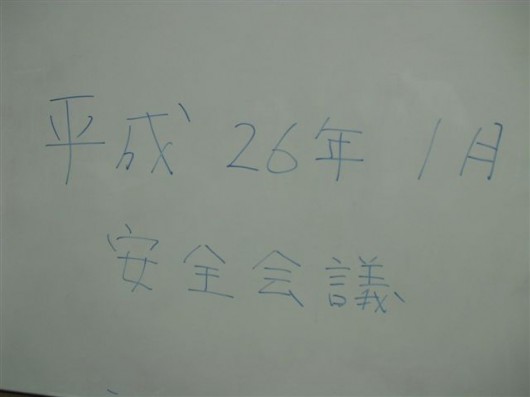 平成 26年 1月
安全会議